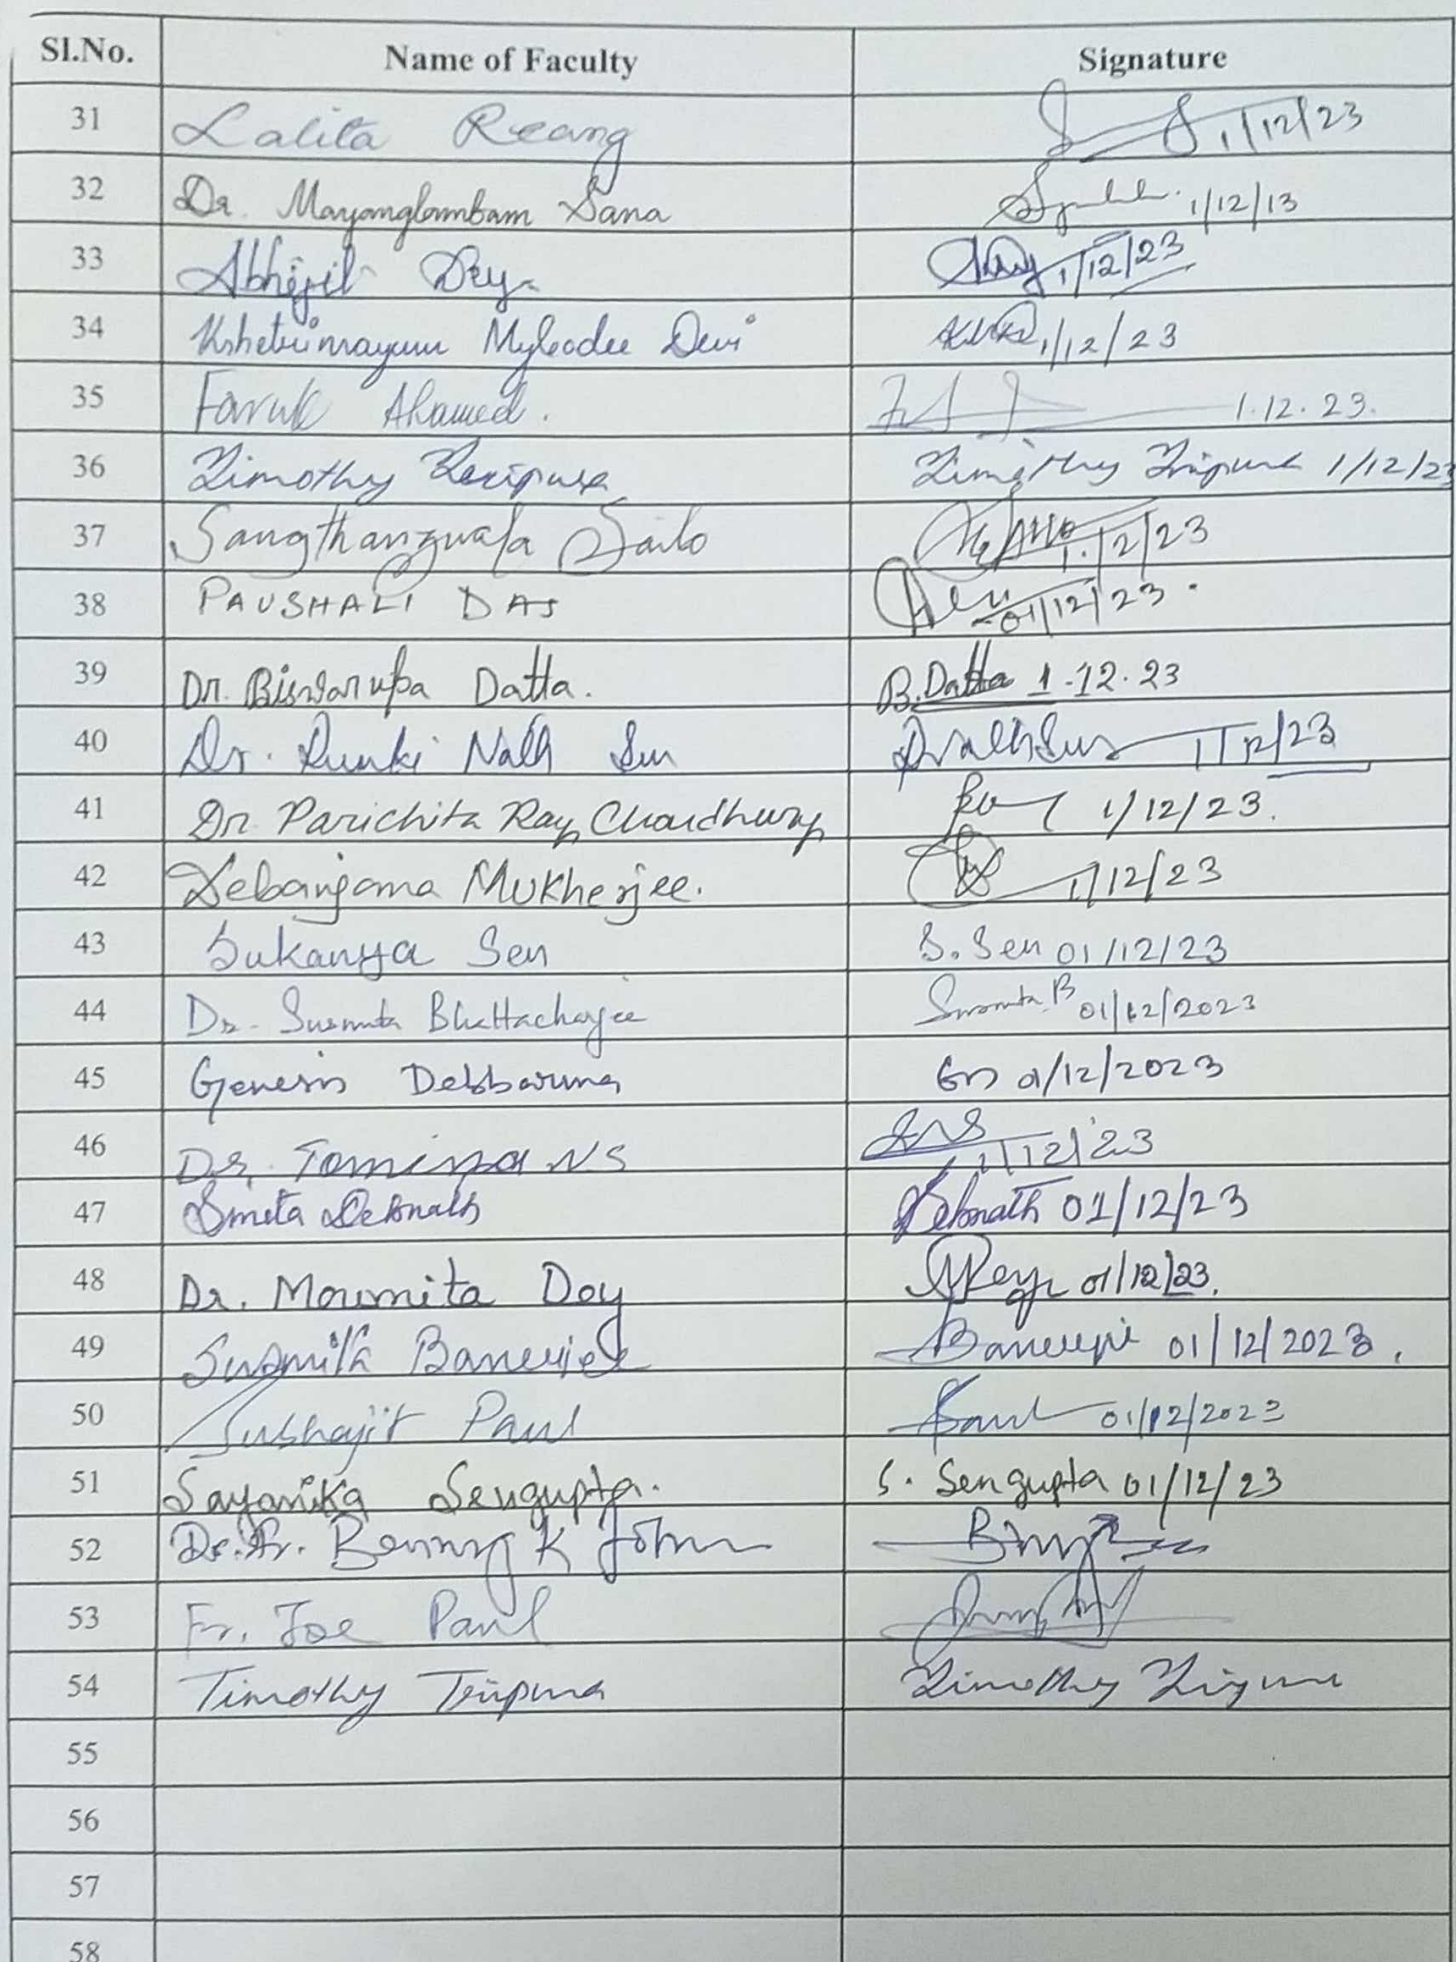 Sl.No. Name of Faculty Signature
31 Lalita Reang 1/12/23
32 Dr. Mayanglambam Sana 1/12/13
33 Abhijit Dey 1/12/23
34 Kshetrimayum Myleodee Devi 1/12/23
35 Faruk Ahamed. 1.12.23.
36 Timothy Tripura Timothy Tripura 1/12/23
37 Sangthanzuala Sailo 1.12/23
38 PAUSHALI DAS 01/12/23.
39 Dr. Biswarupa Datta. B. Datta 1.12.23
40 Dr. Runki Nath Sur RNathSur 1/12/23
41 Dr. Parichita Ray Chaudhury 1/12/23.
42 Debanjana Mukherjee. 1/12/23
43 Sukanya Sen S. Sen 01/12/23
44 Dr. Susmita Bhattacharjee Susmita B 01/12/2023
45 Genesis Debbarma 01/12/2023
46 Dr. Tomina NS 1/12/23
47 Smita Debnath Debnath 01/12/23
48 Dr. Moumita Dey MDey 01/12/23.
49 Susmita Banerjee Banerjee 01/12/2023.
50 Subhajit Paul Paul 01/12/2023
51 Sayanika Sengupta. S. Sengupta 01/12/23
52 Dr. Fr. Benny K John
53 Fr. Joe Paul
54 Timothy Tripura Timothy Tripura
55
56
57
58